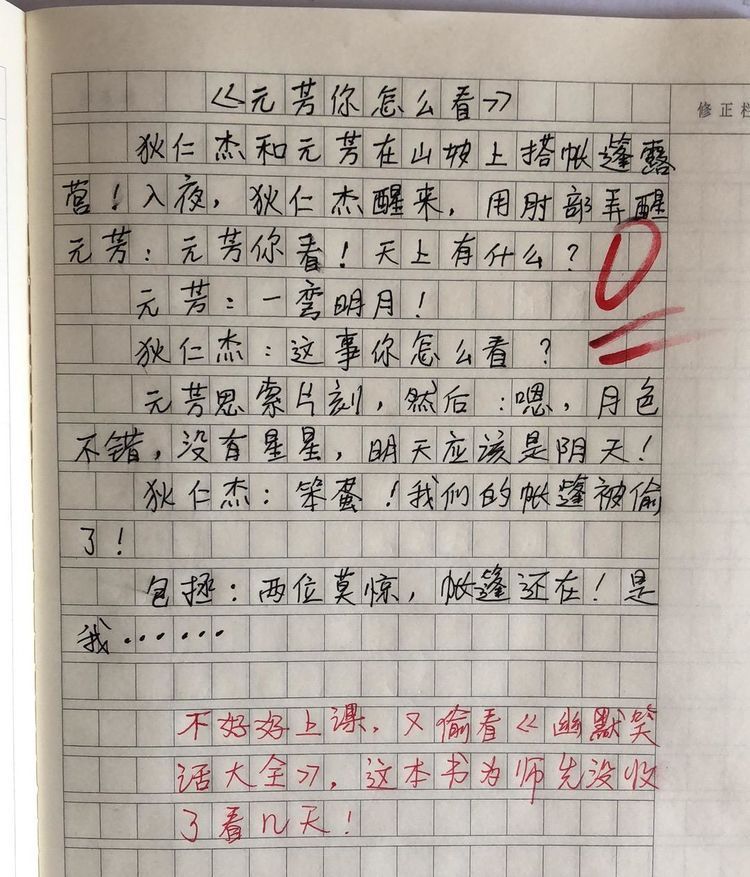 《元芳你怎么看》
修正栏
狄仁杰和元芳在山坡上搭帐篷露
营！入夜，狄仁杰醒来，用肘部弄醒
元芳：元芳你看！天上有什么？
0
元芳：一弯明月！
狄仁杰：这事你怎么看？
元芳思索片刻，然后：嗯，月色
不错，没有星星，明天应该是阴天！
狄仁杰：笨蛋！我们的帐篷被偷
了！
包拯：两位莫惊，帐篷还在！是
我······
不好好上课，又偷看《幽默笑
话大全》，这本书为师先没收
了看几天！